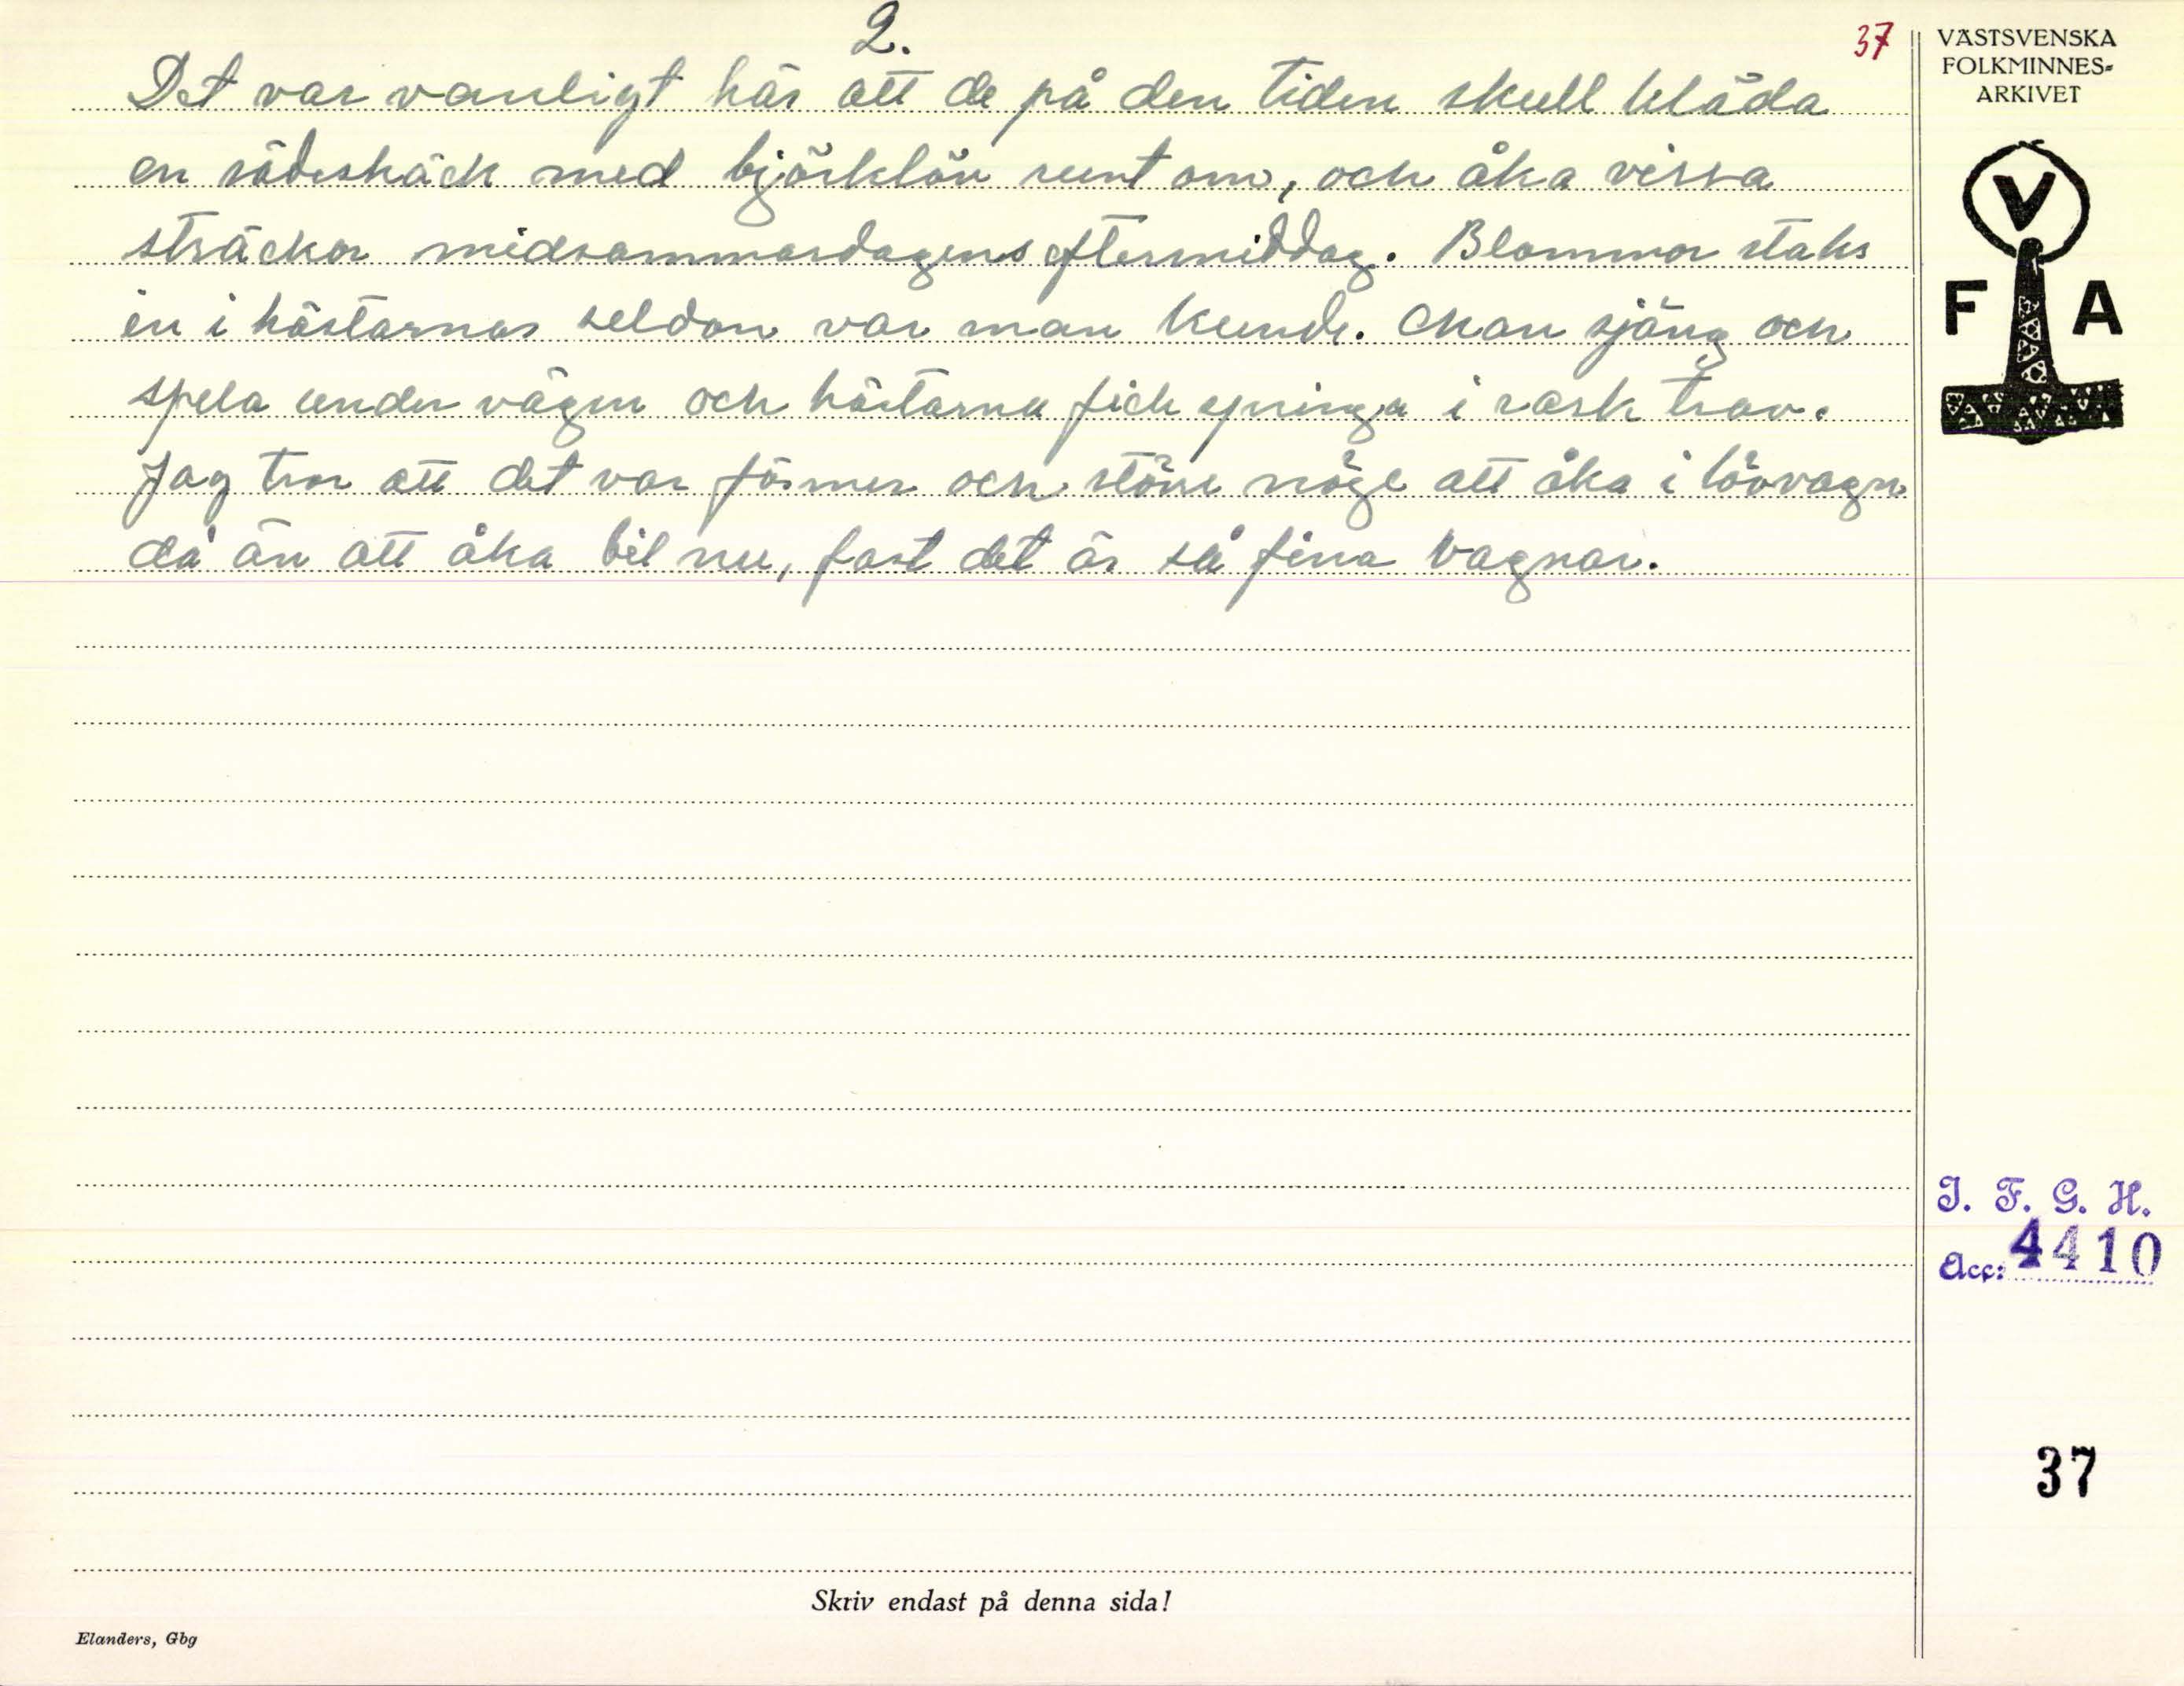 2.
37
Det var vanligt här att de på den tiden skull kläda
en sädeshäck med björklöv runt om, och åka vissa
sträckor midsommardagens eftermiddag. Blommor staks
in i hästarnas seldon var man kunde. Man sjöng och
spela under vägen och hästarna fick springa i rask trav.
Jag tror att det var förmer och större nöge att åka i lövvagn
då än att åka bil nu, fast det är så fina vagnar.
VÄSTSVENSKA
FOLKMINNES-
ARKIVET
V
F A
I. F. G. H.
Acc: 4410
37
Skriv endast på denna sida!
Elanders, Gbg